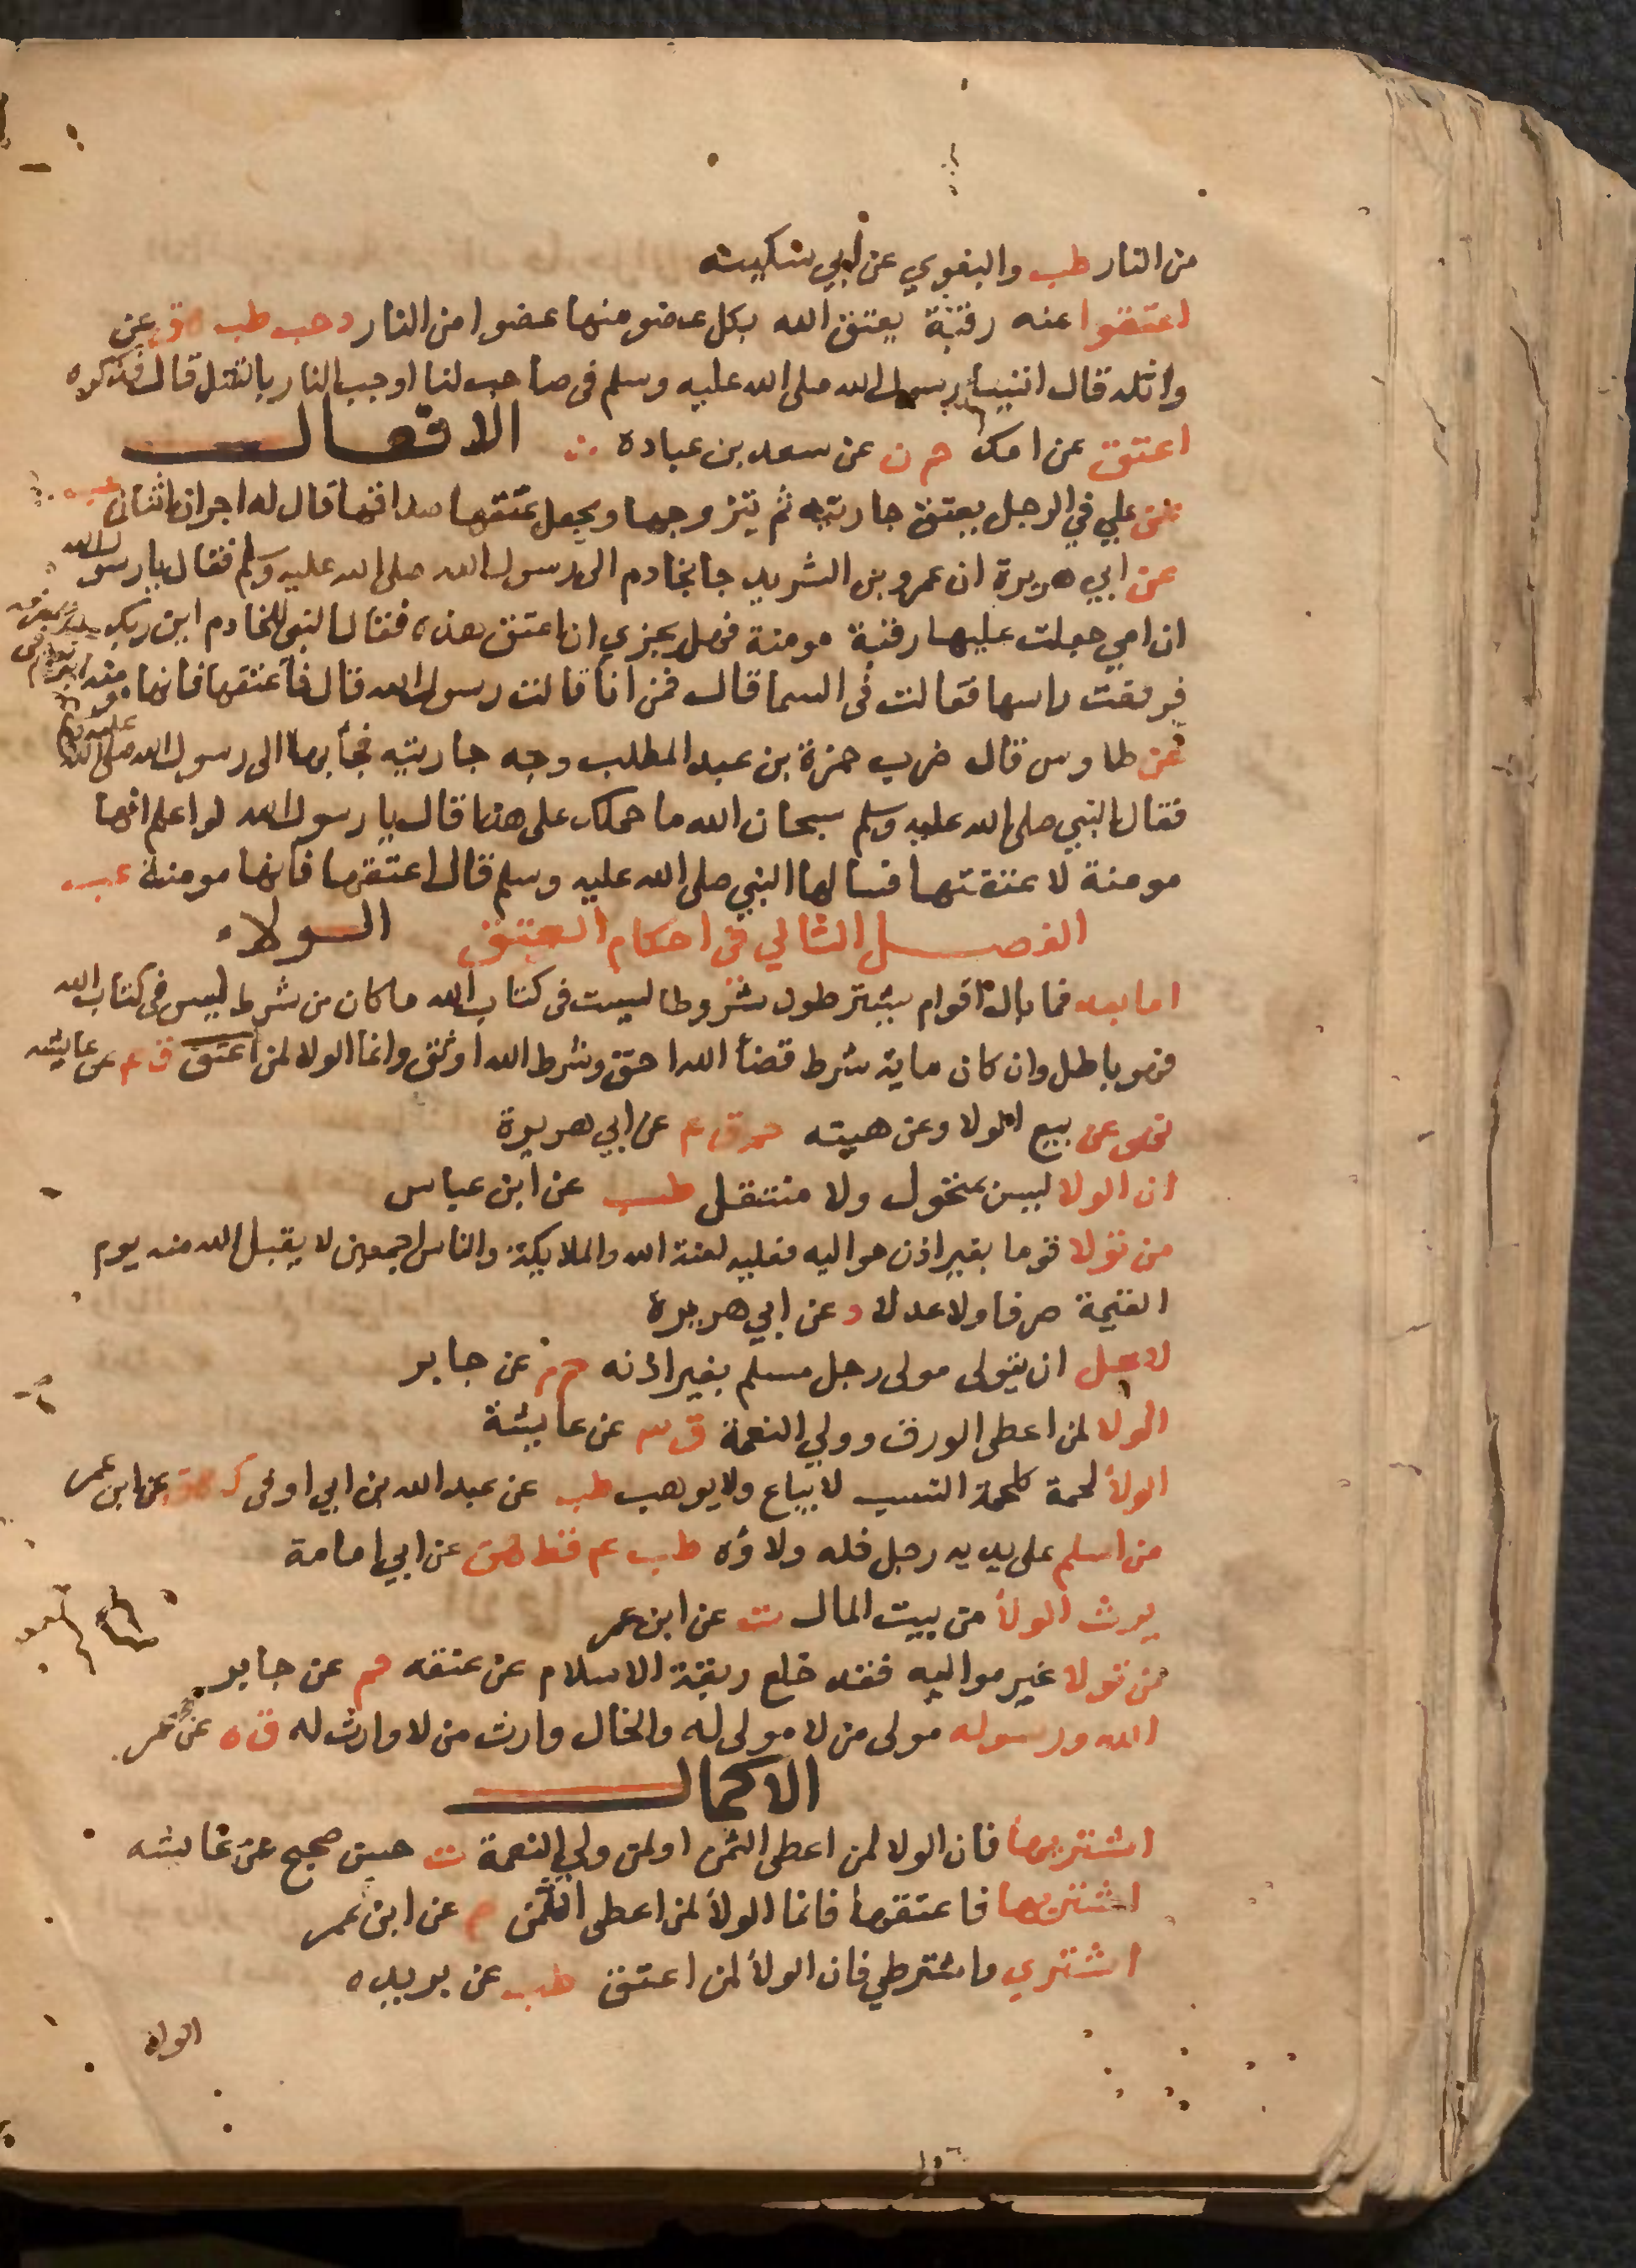 من النار طب والبغوي عن ابي سكينه
اعتقوا عنه رقبة يعتق الله بكل عضو منها عضوا من النار د حب طب ك ق عن
واثله قال اتينا رسول الله صلى الله عليه وسلم في صاحب لنا اوجب النار بالقتل قال فذكره
اعتق عن امك حم ن عن سعد بن عباده الافعال
عن علي في الرجل يعتق جاريته ثم يتزوجها ويجعل عتقها صداقها قال له اجران اثنان عب
عن ابي هريرة ان عمرو بن الشريد جا بخادم الى رسول الله صلى الله عليه وسلم فقال يا رسول الله
ان امي جعلت عليها رقبة مومنة فهل يجزي ان اعتق هذه فقال النبي للخادم اين ربك
فرفعت راسها فقالت في السما قال فمن انا قالت رسول الله قال فاعتقها فانها
عن طاوس قال ضرب حمزة بن عبد المطلب وجه جاريته فجأ بها الى رسول الله صلى الله
فقال النبي صلى الله عليه وسلم سبحان الله ما حملك على هذا قال يا رسول الله لو اعلم انها
مومنة لاعتقتها فسالها النبي صلى الله عليه وسلم قال اعتقها فانها مومنة عب
الفصل الثالي في احكام العتق الولاء
اما بعد فما بال اقوام يشترطون شروطا ليست في كتاب الله ما كان من شرط ليس في كتاب الله
فهو باطل وان كان ماية شرط قضأ الله احق وشرط الله اوثق وانما الولا لمن اعتق ق ع عن عايشه
نهى عن بيع الولا وعن هبته حم ق ع عن ابي هريرة
ان الولا ليس بمتحول ولا منتقل طب عن ابن عباس
من تولا قوما بغير اذن مواليه فعليه لعنة الله والملايكة والناس اجمعين لا يقبل الله منه يوم
القيمة صرفا ولا عدلا د عن ابي هريرة
لا يحل ان يتولى مولى رجل مسلم بغير اذنه حم م عن جابر
الولا لمن اعطى الورق وولي النعمة ق ٣ عن عايشة
الولأ لحمة كلحمة النسب لا يباع ولا يوهب طب عن عبد الله بن ابي اوفى ك هق عن ابن عمر
من اسلم على يديه رجل فله ولاؤه طب عد قط هق عن ابي امامة
يرث الولأ من يرث المال ت عن ابن عمر
من تولا غير مواليه فقد خلع ربقة الاسلام عن عنقه حم عن جابر
الله ورسوله مولى من لا مولى له والخال وارث من لا وارث له ت ه عن عمر
الاكمال
اشتريها فان الولا لمن اعطى الثمن او لمن ولي النعمة ت حسن صحيح عن عايشه
اشتريها فاعتقيها فانما الولأ لمن اعطى الثمن م عن ابن عمر
اشتري واشترطي فان الولأ لمن اعتق طب عن بريده
الولاء